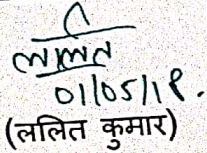 ललित
01/05/18.
(ललित कुमार)